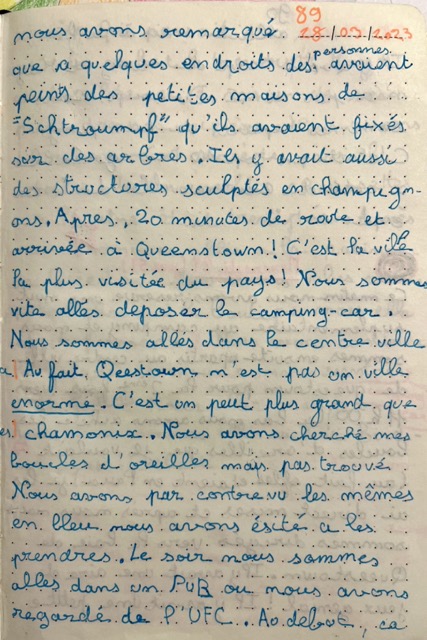 89
nous avons remarqué 28/09/2023
que a quelques endroits des personnes avaient
peints des petites maisons de
"Schtroumpf" qu'ils avaient fixés
sur des arbres. Ils y avait aussi
des structures sculptés en champign-
ons. Apres, 20 minutes de route et
arrivée à Queenstown! C'est la ville
la plus visitée du pays! Nous sommes
vite allés deposer le camping-car.
Nous sommes allés dans le centre ville
! Au fait, Qeestown n'est pas un ville
enorme. C'est un peut plus grand que
! chamonix. Nous avons cherché mes
boucles d'oreilles mais pas trouvé.
Nous avons par contre vu les mêmes
en bleu nous avons ésité a les
prendres. Le soir nous sommes
allés dans un PUB ou nous avons
regardé de l'UFC. Au debut, ca